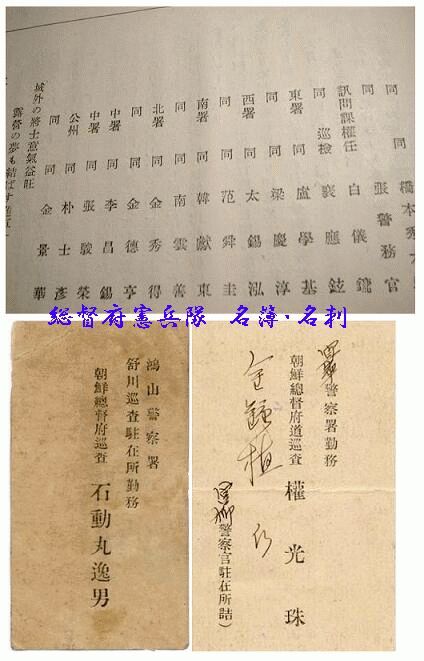 同 同 橋本秀
同 張警務官
訊問課權任 白儀
同 巡檢 裵應鉉
東署 同 盧學基
同 同 梁慶淳
西署 同 太錫泓
同 同 范舜圭
南署 同 韓獻東
同 同 南雲善
北署 同 金秀得
同 同 金德亨
中署 同 李昌錫
中署 同 張駿榮
公州 同 朴士彥
同 同 金景華
城外の將士意氣益旺
露營の夢も結ばす
総督府憲兵隊 名簿·名刺
鴻山警察署
舒川巡査駐在所勤務
朝鮮總督府巡査 石動丸逸男
警察署勤務
朝鮮總督府道巡査 權光珠
警察官駐在所詰)
金鍾植